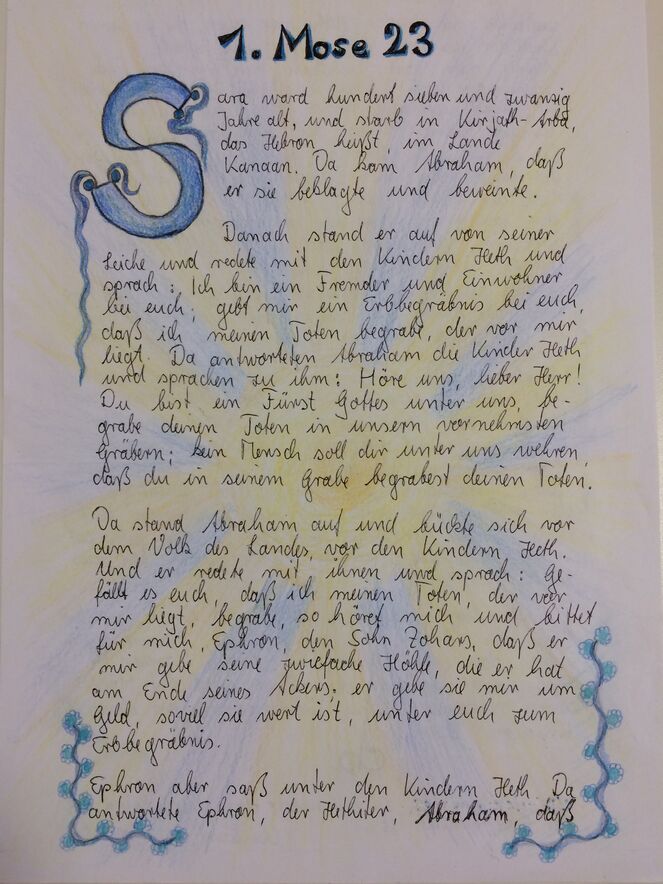 1. Mose 23
Sara ward hundert sieben und zwanzig
Jahre alt, und starb in Kirjath-Arba,
das Hebron heißt, im Lande
Kanaan. Da kam Abraham, daß
er sie beklagte und beweinte.
Danach stand er auf von seiner
Leiche und redete mit den Kindern Heth und
sprach: Ich bin ein Fremder und Einwohner
bei euch; gebt mir ein Erbbegräbnis bei euch,
daß ich meinen Toten begrabe, der vor mir
liegt. Da antworteten Abraham die Kinder Heth
und sprachen zu ihm: Höre uns, lieber Herr!
Du bist ein Fürst Gottes unter uns, be-
grabe deinen Toten in unsern vornehmsten
Gräbern; kein Mensch soll dir unter uns wehren,
daß du in seinem Grabe begrabest deinen Toten.
Da stand Abraham auf und bückte sich vor
dem Volk des Landes, vor den Kindern Heth.
Und er redete mit ihnen und sprach: Ge-
fällt es euch, daß ich meinen Toten, der vor
mir liegt, begrabe, so höret mich und bittet
für mich Ephron, den Sohn Zohars, daß er
mir gebe seine zwiefache Höhle, die er hat
am Ende seines Ackers; er gebe sie mir um
Geld, soviel sie wert ist, unter euch zum
Erbbegräbnis.
Ephron aber saß unter den Kindern Heth. Da
antwortete Ephron, der Hethiter, Abraham, daß